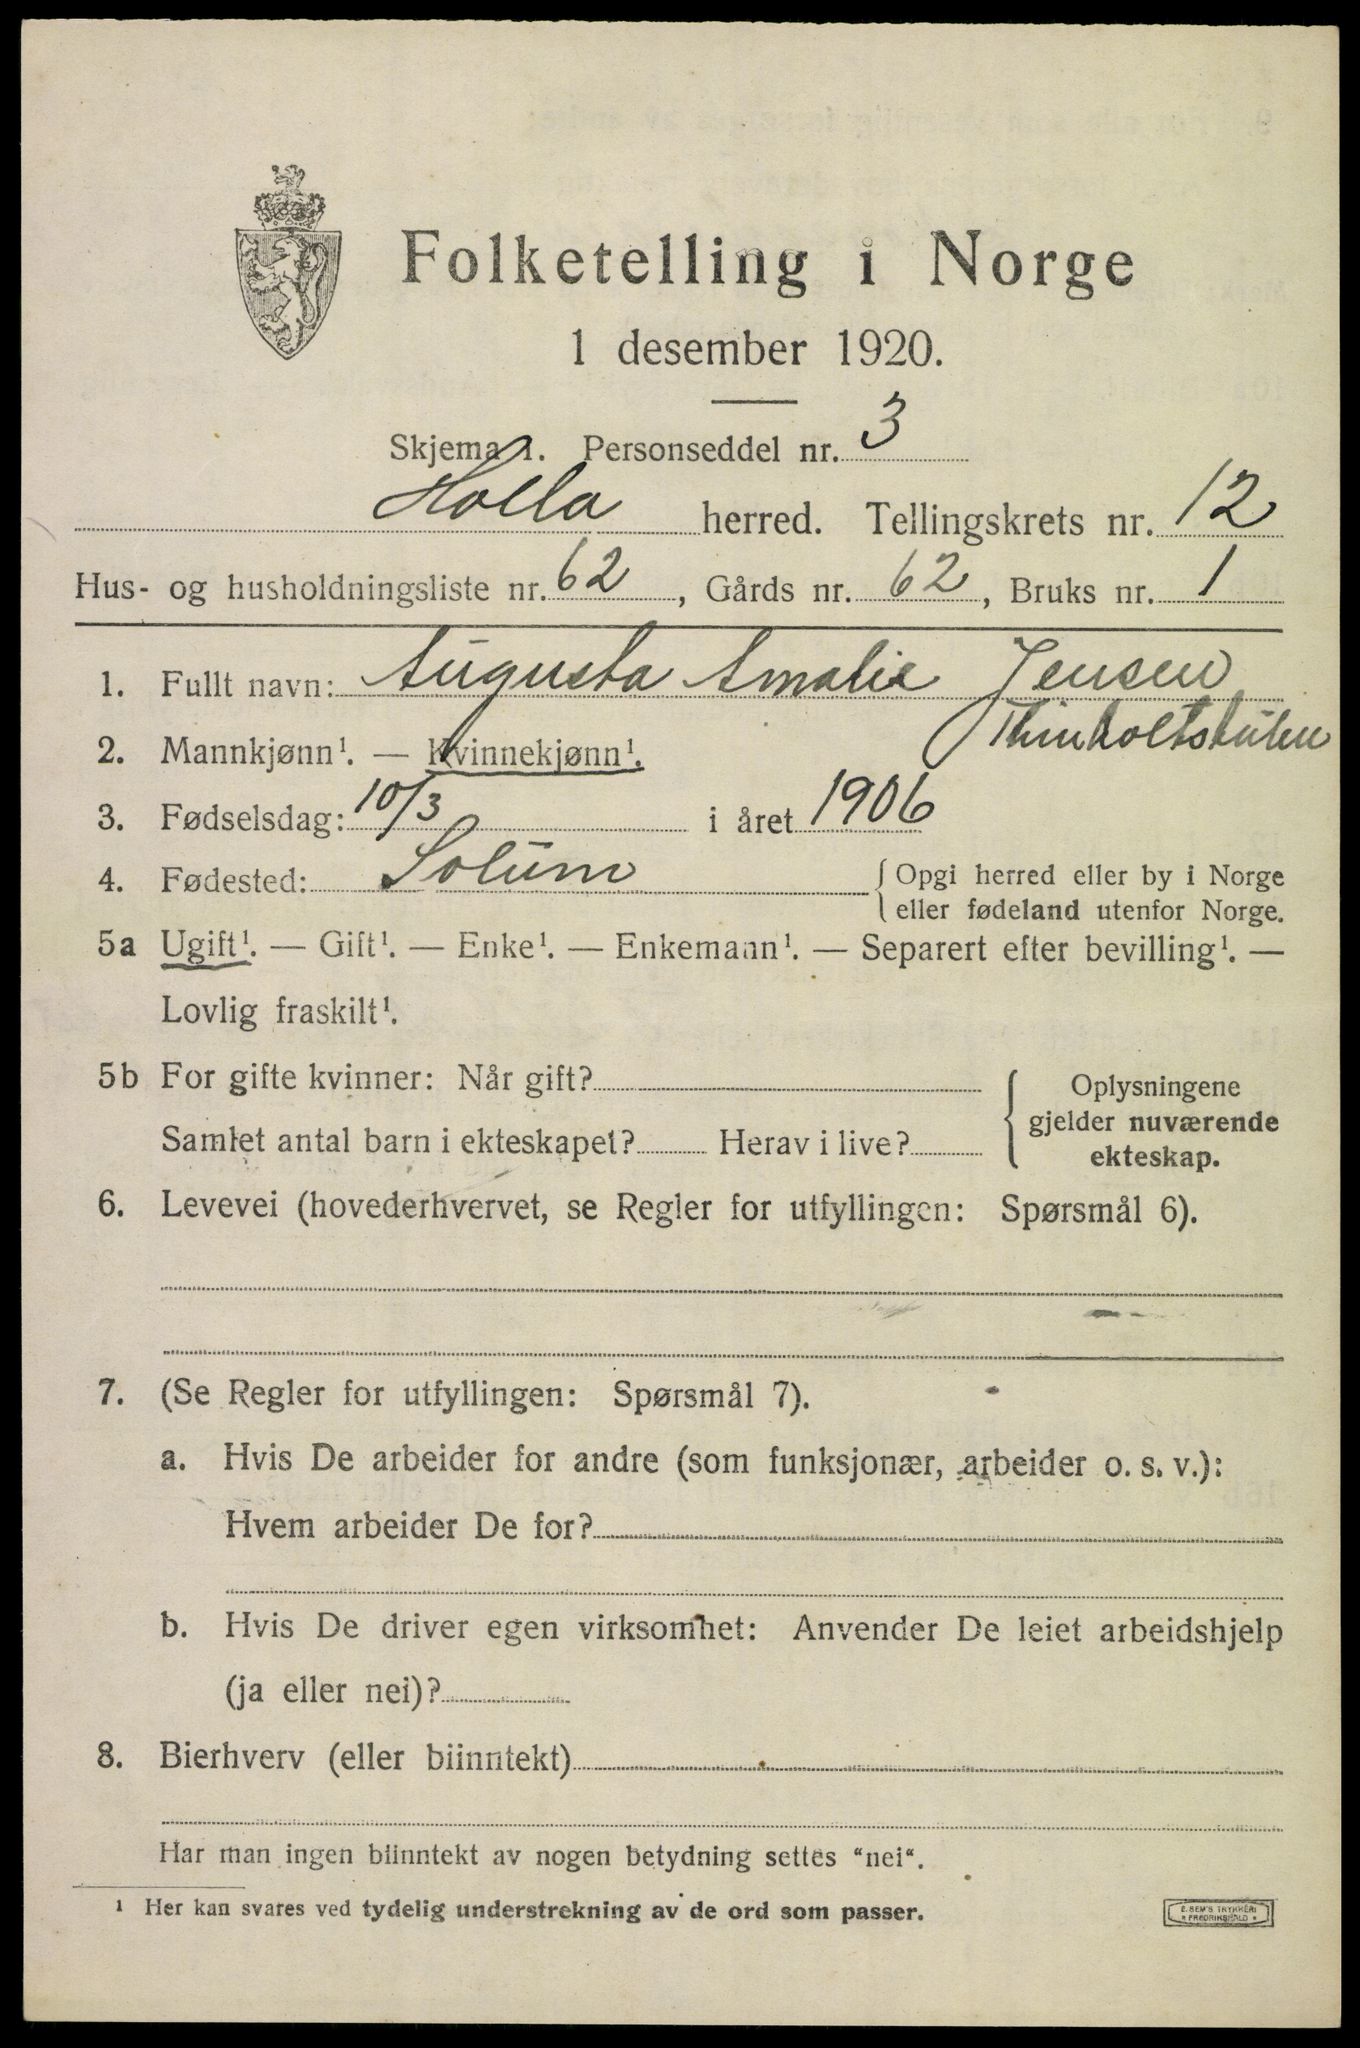 Folketelling i Norge
1 desember 1920.
Skjema 1. Personseddel nr. 3
Holla herred. Tellingskrets nr. 12
Hus- og husholdningsliste nr. 62, Gårds nr. 62, Bruks nr. 1
1. Fullt navn: Augusta Amalie Jensen
2. Mannkjønn¹. — Kvinnekjønn¹.
3. Fødselsdag: 10/3 i året 1906
4. Fødested: Solum { Opgi herred eller by i Norge
eller fødeland utenfor Norge.
5a Ugift¹. — Gift¹. — Enke¹. — Enkemann¹. — Separert efter bevilling¹. —
Lovlig fraskilt¹.
5b For gifte kvinner: Når gift?
Samlet antal barn i ekteskapet? Herav i live?
{ Oplysningene
gjelder nuværende
ekteskap.
6. Levevei (hovederhvervet, se Regler for utfyllingen: Spørsmål 6).
7. (Se Regler for utfyllingen: Spørsmål 7).
a. Hvis De arbeider for andre (som funksjonær, arbeider o. s. v.):
Hvem arbeider De for?
b. Hvis De driver egen virksomhet: Anvender De leiet arbeidshjelp
(ja eller nei)?
8. Bierhverv (eller biinntekt)
Har man ingen biinntekt av nogen betydning settes "nei".
¹ Her kan svares ved tydelig understrekning av de ord som passer.
E. SEM'S TRYKKERI
FREDRIKSHALD